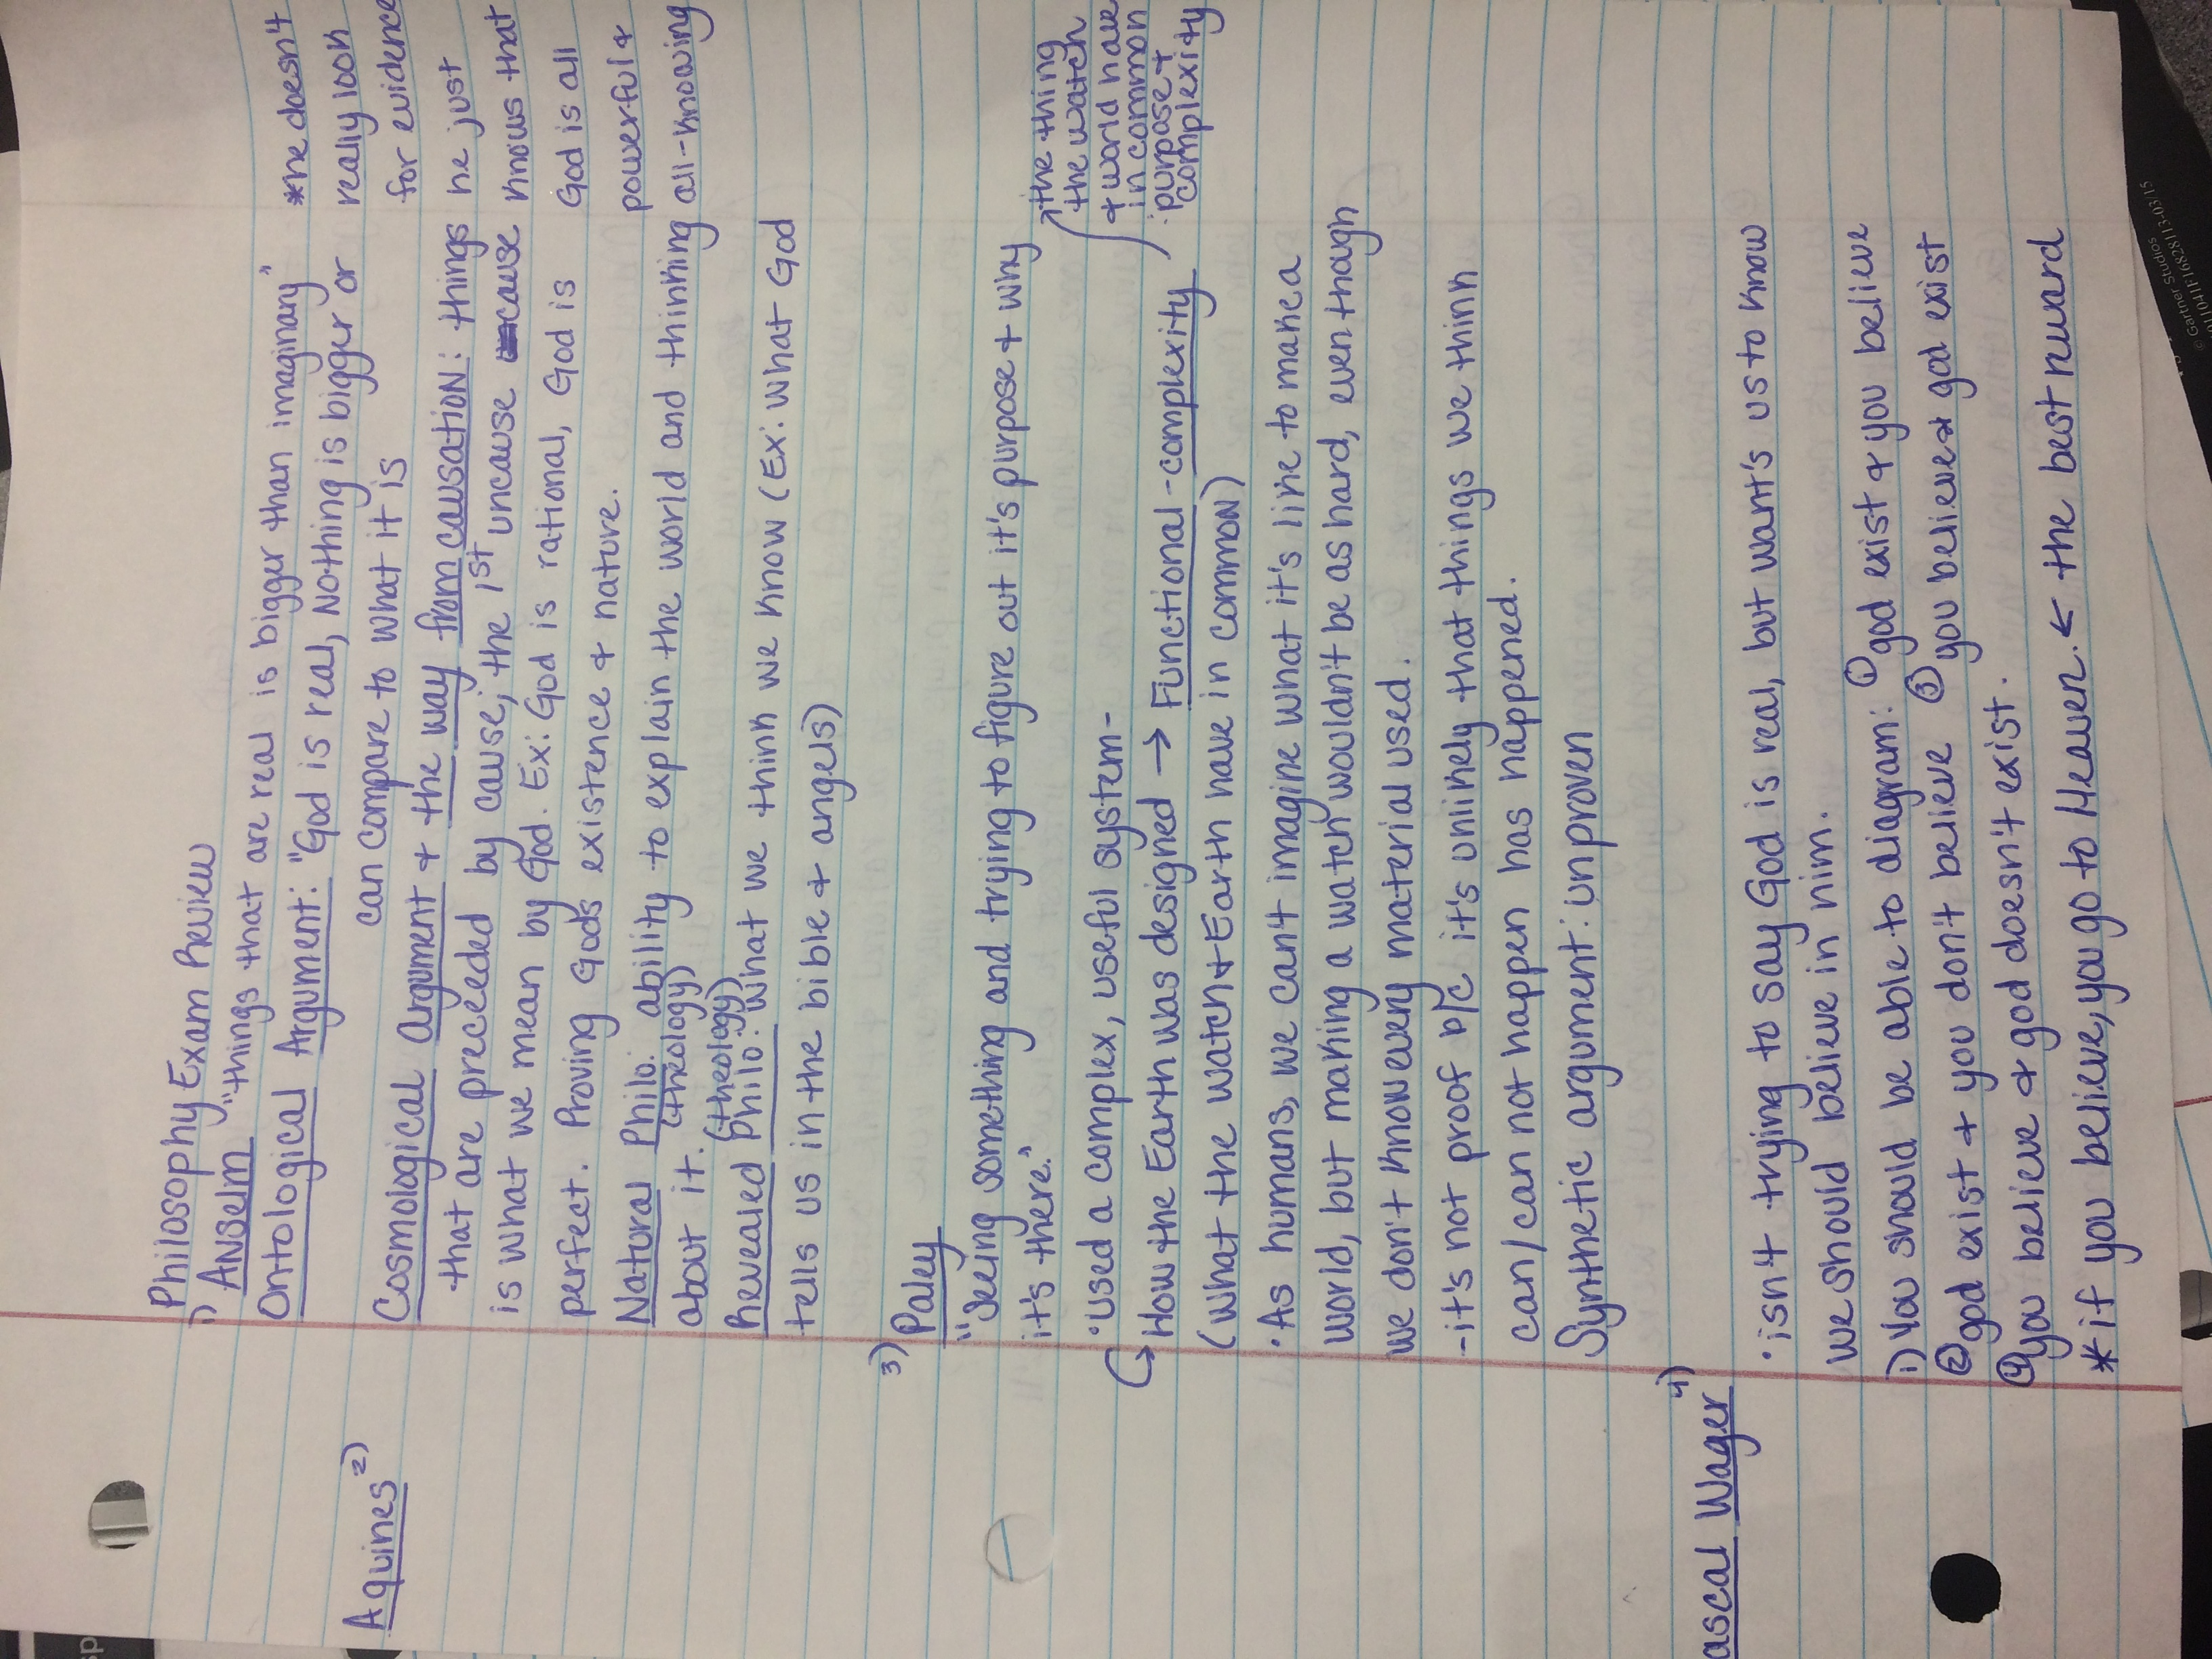 Philosophy Exam Review
1) Anselm "things that are real is bigger than imaginary"
Ontological Argument: "God is real, Nothing is bigger or
can compare to what it is
*he doesn't
really look
for evidence
he just
knows that
God is all
powerful +
all-knowing
Aquines 2)
Cosmological Argument + the way from causation: things
that are preceeded by cause; the 1st uncause cause
is what we mean by God. Ex: God is rational, God is
perfect. Proving Gods existence + nature.
Natural Philo. ability to explain the world and thinking
(theology)
about it.
(theology)
Revealed Philo: What we think we know (Ex: what God
tells us in the bible + angels)
3) Paley
"Seeing something and trying to figure out it's purpose + why
it's there."
• Used a complex, useful system-
↳ How the Earth was designed → Functional-complexity
(what the watch + Earth have in common)
the thing
the watch
+ world have
in common
: purpose +
complexity
• As humans, we can't imagine what it's like to make a
world, but making a watch wouldn't be as hard, even though
we don't know every material used.
- it's not proof b/c it's unlikely that things we think
can/can not happen has happened.
Synthetic argument: unproven
ascal Wager 4)
• isn't trying to say God is real, but want's us to know
we should believe in him.
1) You should be able to diagram: ① god exist + you believe
② god exist + you don't believe ③ you believe + god exist
④ you believe + god doesn't exist.
* if you believe, you go to Heaven. ← the best reward
Gartner Studios